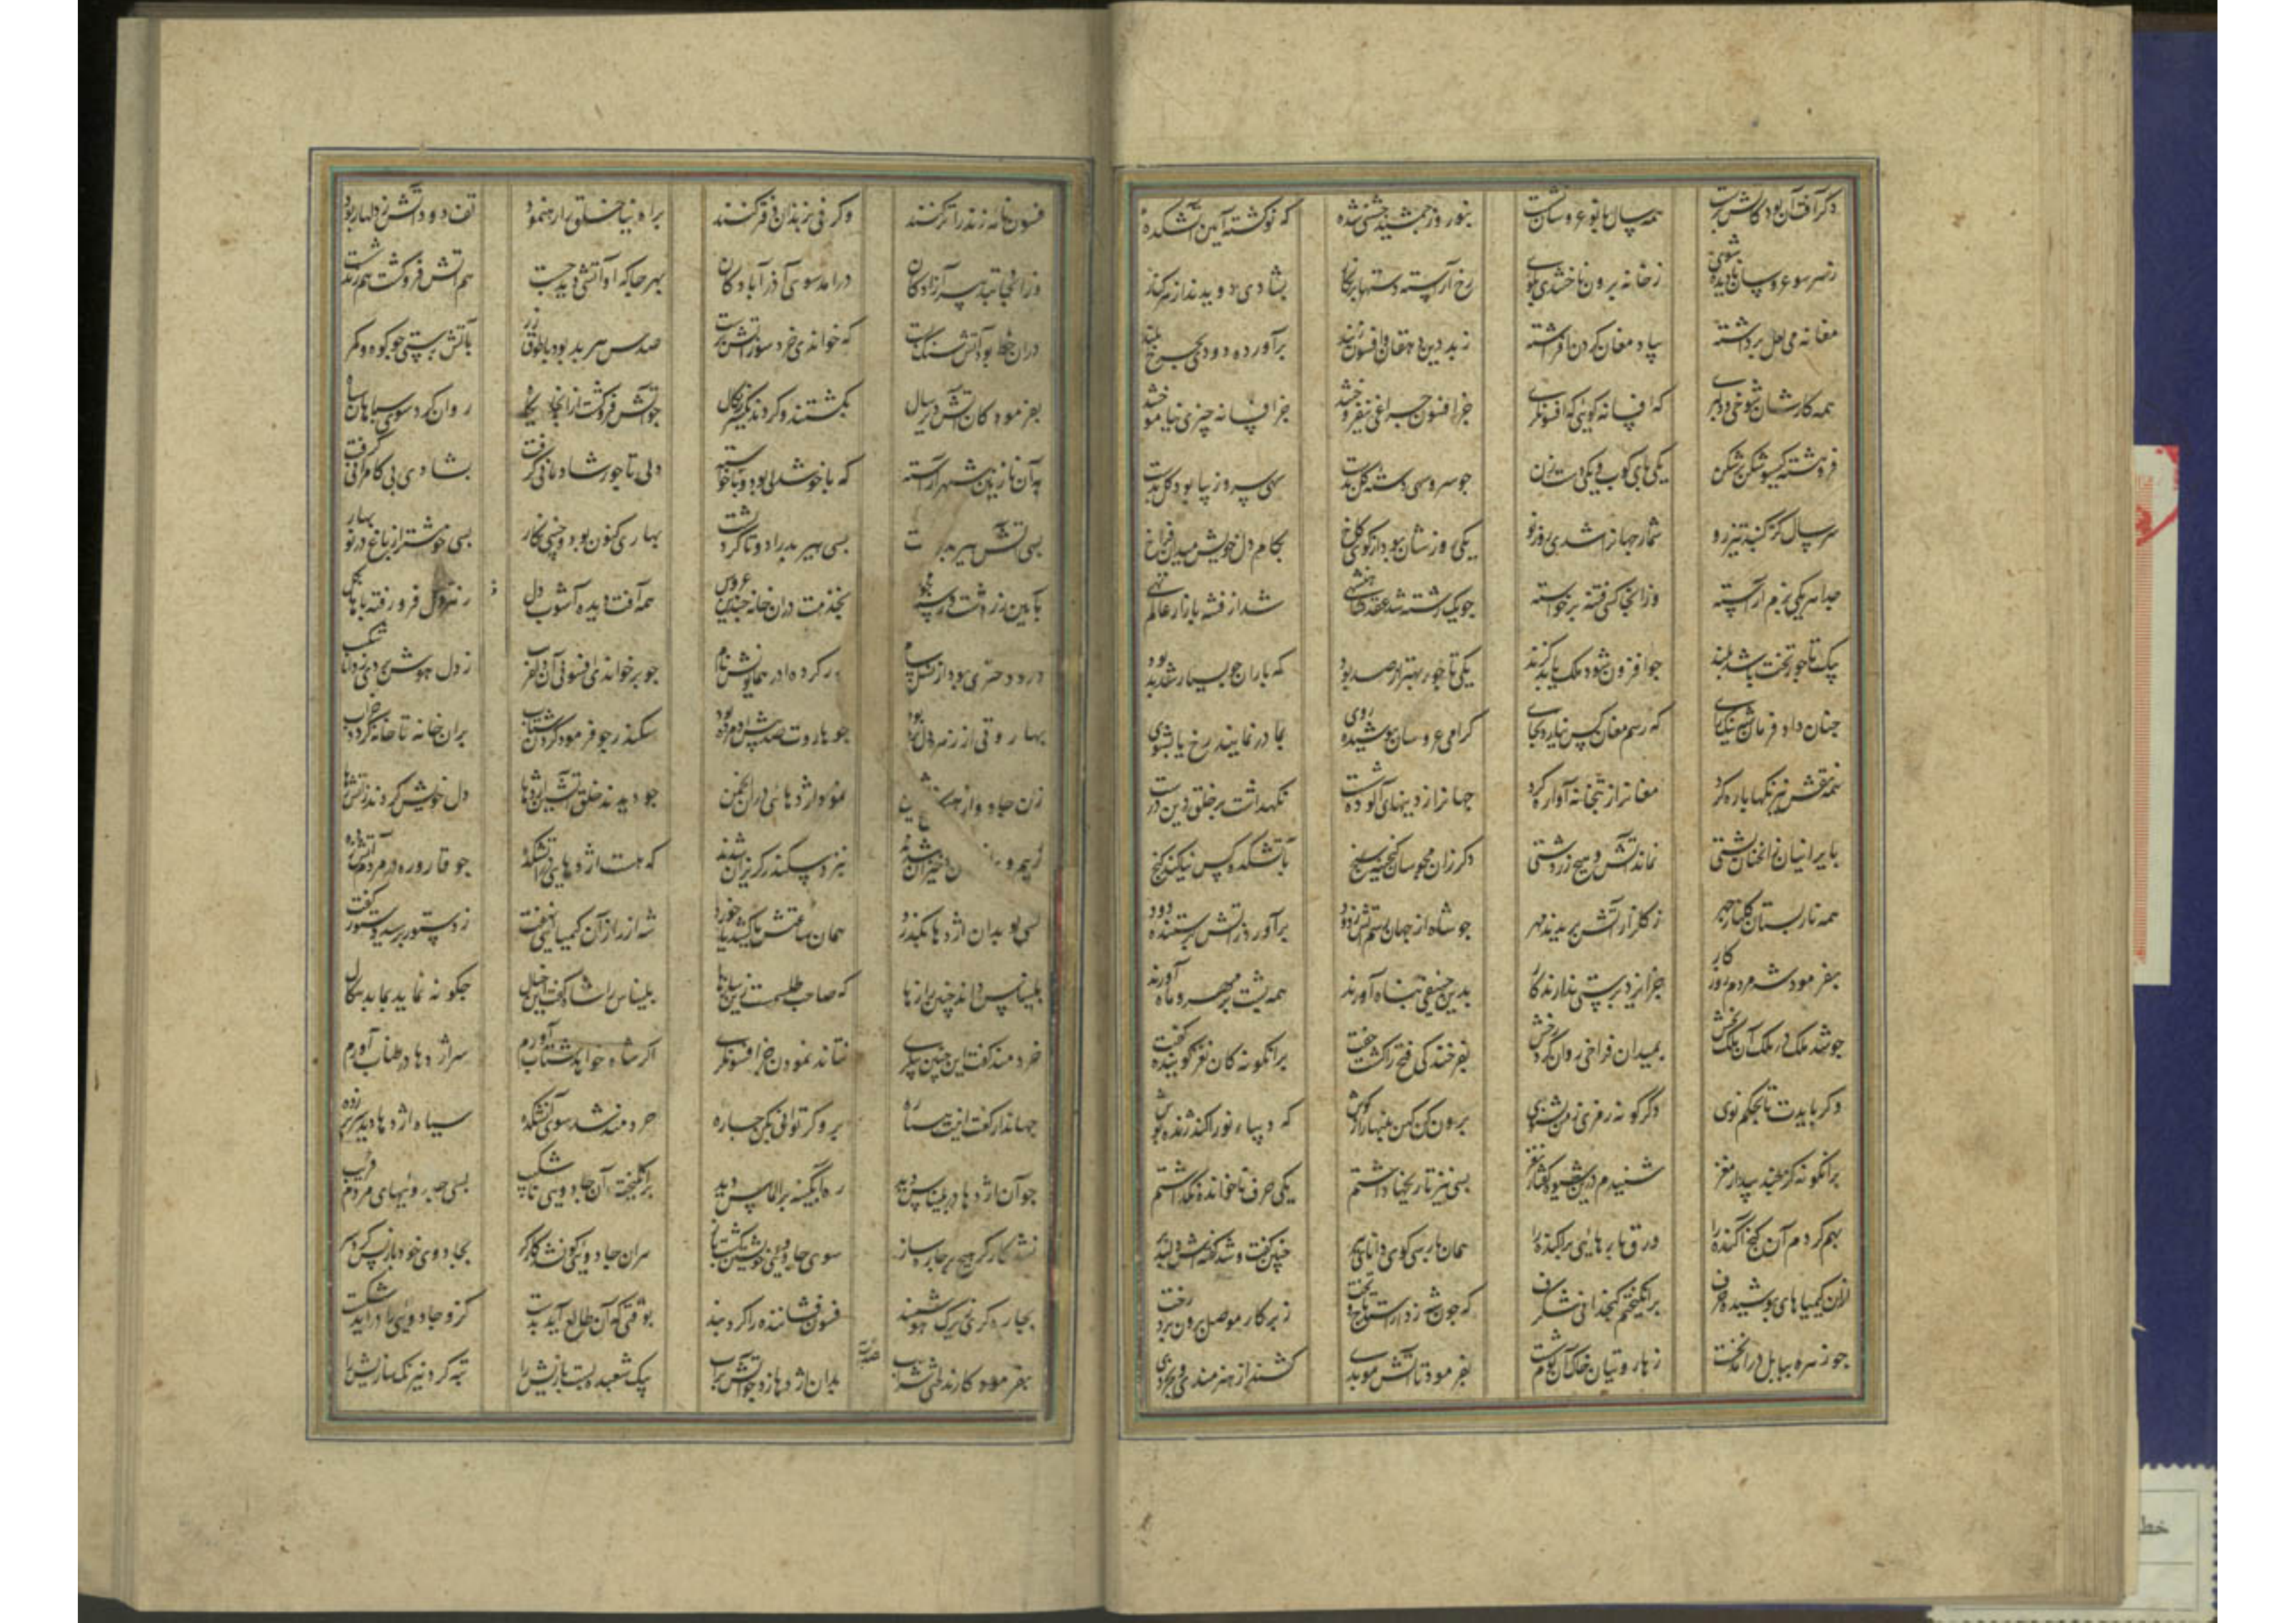 دگر آفت آن بود کآتش پرست همه سال با نوعروسان نشست بنوروز جمشید و جشن سده که نو گشتی آیین آتشکده
ز هر سو عروسان نادیده شوی ز خانه برون تاختندی بکوی رخ آراسته دستها پر نگار بشادی دویدند از هر کنار
مغانه می لعل برداشته بیاد مغان گردن افراشته ز بد دین دهقان و افسون زند برآورده دودی بچرخ بلند
همه کارشان شوخی و دلبری که افسانه گویی که افسونگری جز افسون چراغی نیفروختند جز افسانه چیزی نیاموختند
فروهشته گیسو شکن بر شکن یکی پای کوب و یکی دست زن چو سرو سهی دسته گل بدست سهی سرو زیبا بود گل بدست
سر سال کز گنبد تیزرو شمار جهانرا شدی روز نو یکی روزشان بود از کوی و کاخ بکام دل خویش میدان فراخ
جدا هر یکی بزم آراسته وزانجا کسی فتنه برخواسته چو یک رشته شد عقد شاهنشهی شد از فتنه بازار عالم تهی
بیک تاجور تخت باشد بلند چو افزون شود ملک یابد گزند یکی تاجور بهتر از صد بود که باران چو بسیار شد بد بود
چنان داد فرمان شه نیک رای که رسم مغان کس نیارد بجای گرامی عروسان پوشیده روی بمادر نمایند رخ یا بشوی
همه نقش نیرنگها پاره کرد مغانرا ز بتخانه آواره کرد جهانرا ز دینهای آلوده شست نگهداشت بر خلق دین درست
بایرانیان زانچنان پشتی نماند آتش هیچ زردشتی دگر زان مجوسان گنجینه سنج بآتشکده کس نیکند گنج
همه نار پستان گلنار چهر ز گلزار آتش بریدند مهر چو شاه از جهان رسم آتش زدود برآورد ز آتش پرستنده دود
بفرمود شه مردم روزگار جز ایزد پرستی ندارند کار بدین حنیفی پناه آورند همه پشت بر مهر و ماه آورند
چو شد ملک در ملک آن ملک بخش بمیدان فراخی روان کرد رخش بفرخندگی فتح را گشت جفت برانگونه کان نغز گوینده گفت
دگر بایدت تا بحکم نوی دگرگونه رمزی ز من بشنوی برون کن کهن پنبها را ز گوش که دیباء نو را کند ژنده پوش
برانگونه کز چند بیدار مغز شنیدم درین شیوه گفتار نغز بسی نیز تاریخها داشتم یکی حرف ناخوانده نگذاشتم
بهم کردم آن گنج آکنده را ورق پارهایی پراکنده را همان پارسی گوی دانای پیر چنین گفت و شد گفتهاش دلپذیر
ازان کیمیاهای پوشیده حرف برانگیختم گنجدانی شگرف که چون شه ز دارا ستد تاج و تخت ز پرگار موصل برون برد رخت
چو زهره ببابل درآمد نخست ز هاروتیان خاک آن بوم شست بفرمود تا آتش موبدی کشند از هنرمندی و بخردی
فسون نامه زند را تر کنند وگر نی بزندان دفتر کنند براه نیا خلق را رهنمود تف و دود آتش ز دلها ربود
وزانجا بتدبیر آزادگان درآمد سوی آذرآبادگان بهر جا که او آتشی دید جست هم آتش فروکشت هم زند شست
دران خطه بود آتش سنگ بست که خواندی خرد سوز آتش پرست صدش هیربد بود با طوق زر بآتش پرستی چو کوه و کمر
بفرمود کان آتش دیر سال بکشتند و کردند یکسر زکال چو آتش فروکشت ازانجایگاه روان کرد سوی سپاهان سپاه
بدآن نازنین شهر آراسته که با خوشدلی بود و با خواسته دلی تاجور شادمانی گرفت بشادی پی کامرانی گرفت
بسی آتش هیربد بسی هیربد را دوتا کرد پشت بهاری کنون بود چینی نگار بسی خوشتر از باغ در نوبهار
بآیین زردشت بخدمت دران خانه چندین عروس همه آفت دیده آشوب دل ز نزدل فرو رفته پاها بگل
درو دختری بود از نسل سام پدر کرده آذر همایونش نام چو برخواندی افسونی آن دلفریب ز دل هوش بردی ز دانا شکیب
بهاروتی از زهره دل برده بود چو هاروت صد پیش او مرده بود سکندر چو فرمود کردن شتاب بران خانه تا خانه گردد خراب
زن جادو از نمود اژدهایی دران انجمن چو دیدند خلق آتشین اژدها دل خویش کردند ز آتش رها
ز بیم خیزان شدند بنزد سکندر گریزان شدند که هست اژدهایی در آتشکده چو قاروره در مردم آتش زده
کسی کو بدان اژدها بگذرد همان ساعتش یا کشد یا خورد شه از راز آن کیمیای نهفت ز دستور پرسید و دستور گفت
بلیناس داند چنین رازها که صاحب طلسمست ازین سازها بلیناس را شاه گفت این خیال چگونه نماید بما بدسگال
خردمند گفت این چنین پیکری نتاند نمودن جز افسونگری اگر شاه خواهد شتاب آورم سر اژدها در طناب آورم
جهاندار گفت اینت پتیاره برو گر توانی بکن چاره خردمند شد سوی آتشکده سیاه اژدها دید سر بر زده
چو آن اژدها در بلیناس دید ره آبگینه بر الماس دید برانگیخت آن جادویی ناشکیب بسی جادوییهای مردم فریب
نشد کارگر هیچ بر چاره ساز سوی جادوی خویشتن گشت باز هران جادویی کو نشد کارگر بجادوی خود باز پس کرد سر
بچاره گری زیرک هوشمند فسون فشاننده را کرد بند بوقتی که آن طالع آید بدست کزو جادویی را درآید شکست
بفرمود کارند لختی شراب بدان اژدها زد چو آتش بر آب بیک شعبده بست بازیش را تبه کرد نیرنگ سازیش را